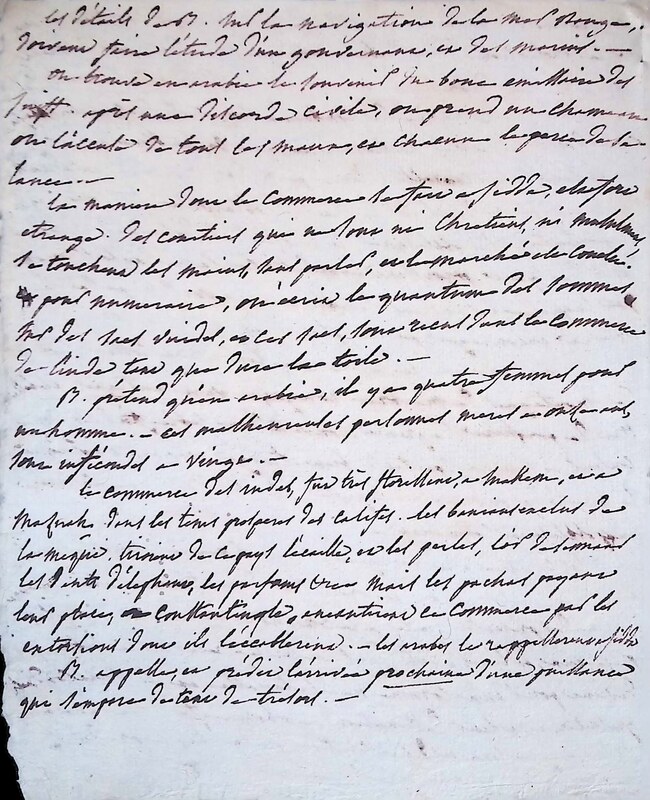 les détails de B. sur la navigation de la mer rouge,
doivent faire l'étude d'un gouvernant, et des marins. —
on trouve en arabie le souvenir du bouc émissaire des
juifs. après une discorde civile, on prend un chameau
on l'accuse de tous les maux, et chacun le perce de sa
lance. —
la manière dont le commerce se fait a jidda, est fort
etrange. des courtiers qui ne sont ni chretiens, ni musulmans
se touchent les mains, sans parler, et le marché est conclu.
pour numeraire, on écrit le quantum des sommes
sur des sacs vuides, et ces sacs, sont recus dans le commerce
de l'inde tant que dure la toile. —
B. prétend qu'en arabie, il y a quatre femmes pour
un homme. — ces malheureuses personnes meres a onze ans,
sont infécondes a vingt. —
le commerce des indes, fut très florissant, a et a
dans les tems prosperes des califes. les banians exclus de
la mecque. tiroient de ce pays l'écaille, et les perles, l'or des
les dents d'éléphans, les parfums &c. Mais les pachas payant
leur place, a constantinople, anéantirent ce commerce par les
extorsions dont ils l'accablerent. — les arabes le rappellerent a jidda
B. appelle, et prédit l'arrivée prochaine d'une puissance
qui s'empare de tant de trésors. —